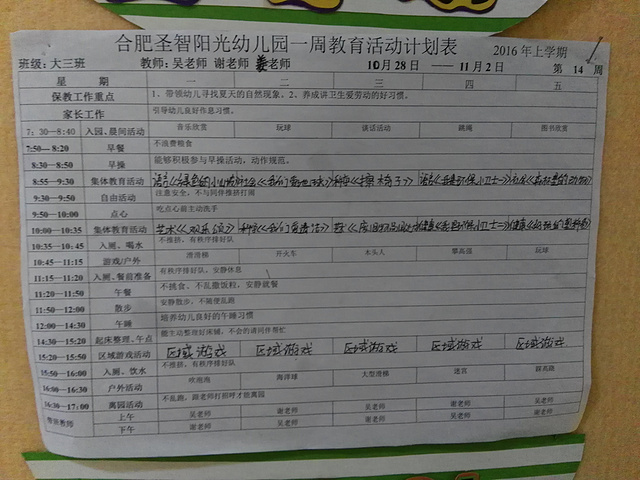 合肥圣智阳光幼儿园一周教育活动计划表 2016年上学期
班级:大三班 教师:吴老师 谢老师 姜老师 10月28日 ——11月2日 第 14 周
星 期 一 二 三 四 五
保教工作重点 1、带领幼儿寻找夏天的自然现象。2、养成讲卫生爱劳动的好习惯。
家长工作 引导幼儿良好作息习惯。
7:30—8:40 入园、晨间活动 音乐欣赏 玩球 谈话活动 跳绳 图书欣赏
7:50—8:20 早餐 不浪费粮食
8:30—8:50 早操 能够积极参与早操活动,动作规范。
8:55—9:30 集体教育活动 语言
9:30—9:50 自由活动 注意安全,不与同伴推挤打闹
9:50—10:00 点心 吃点心前主动洗手
10:00—10:35 集体教育活动 艺术《欢乐颂》 科学
10:35—10:45 入厕、喝水 不推挤,有秩序排好队
10:45—11:15 游戏/户外 滑滑梯 开火车 木头人 攀高强 玩球
11:15—11:20 入厕、餐前准备 有秩序排好队,安静休息
11:20—11:50 午餐 不挑食、不乱撒饭粒,安静就餐
11:50—12:00 散步 安静散步,不随便乱跑
12:00—14:30 午睡 培养幼儿良好的午睡习惯
14:30—15:20 起床整理、午点 能主动整理好床铺,不会的请同伴帮忙
15:20—15:50 区域游戏活动 区域游戏 区域游戏 区域游戏 区域游戏 区域游戏
15:50—16:00 入厕、饮水 不推挤,有秩序排好队
16:00—16:30 户外活动 吹泡泡 海洋球 大型滑梯 迷宫
16:30—17:00 离园活动 不乱跑,跟老师打招呼才能离园
带班教师 上午 吴老师 谢老师 吴老师 谢老师 吴老师
下午 谢老师 吴老师 谢老师 吴老师 谢老师